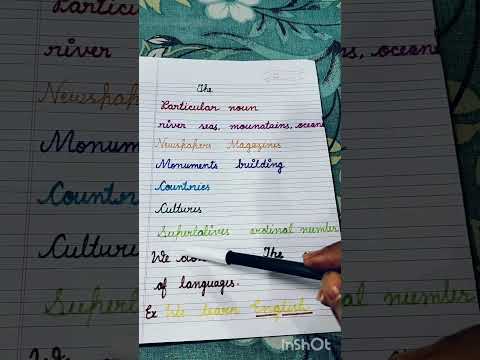 The
Particular noun
river seas, mounatains, ocean
Newspapers Magezines
Monuments building
Countries
Cultures
Superlatives ordinal number
We The
of languages.
Ex We learn English
InShOt